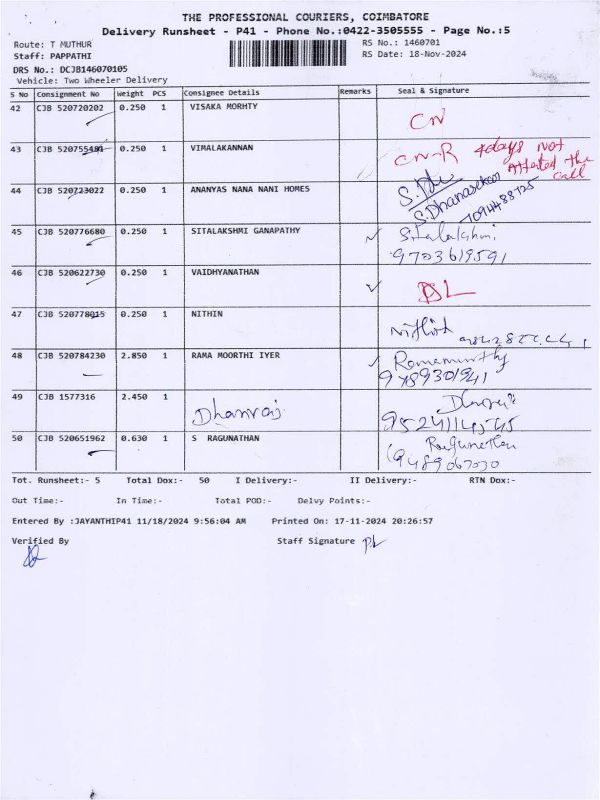 THE PROFESSIONAL COURIERS, COIMBATORE
Delivery Runsheet - P41 - Phone No.:0422-3505555 - Page No.:5
Route: T MUTHUR Consignee Details RS No.: 1460701
Staff: PAPPATHI RS Date: 18-Nov-2024
DRS No.: DCJB146070105
Vehicle: Two Wheeler Delivery
S No Consignment No Weight PCS Consignee Details Remarks Seal & Signature
42 CJB 520720202 0.250 1 VISAKA MORHTY CN
43 CJB 520755481 0.250 1 VIMALAKANNAN CN-R 4days not
Attested the
call
44 CJB 520723022 0.250 1 ANANYAS NANA NANI HOMES
S.Dhanasekar
45 CJB 520776680 0.250 1 SITALAKSHMI GANAPATHY Sitalakshmi
9703619591
46 CJB 520622730 0.250 1 VAIDHYANATHAN DL
47 CJB 520778015 0.250 1 NITHIN
48 CJB 520784230 2.850 1 RAMA MOORTHI IYER Ramamurthy
9789301941
49 CJB 1577316 2.450 1 Dhanraj
50 CJB 520651962 0.630 1 S RAGUNATHAN Ragunathan
9489067030
Tot. Runsheet:- 5 Total Dox:- 50 I Delivery:- II Delivery:- RTN Dox:-
Out Time:- In Time:- Total POD:- Delvy Points:-
Entered By :JAYANTHIP41 11/18/2024 9:56:04 AM Printed On: 17-11-2024 20:26:57
Verified By Staff Signature P.L